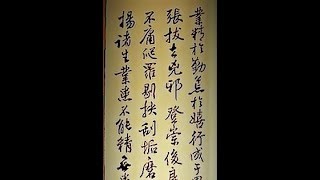 業精於勤荒於嬉行成于思
張拔去兇邪登崇俊良
不庸爬羅剔抉刮垢磨
揚諸生業患不能精無患